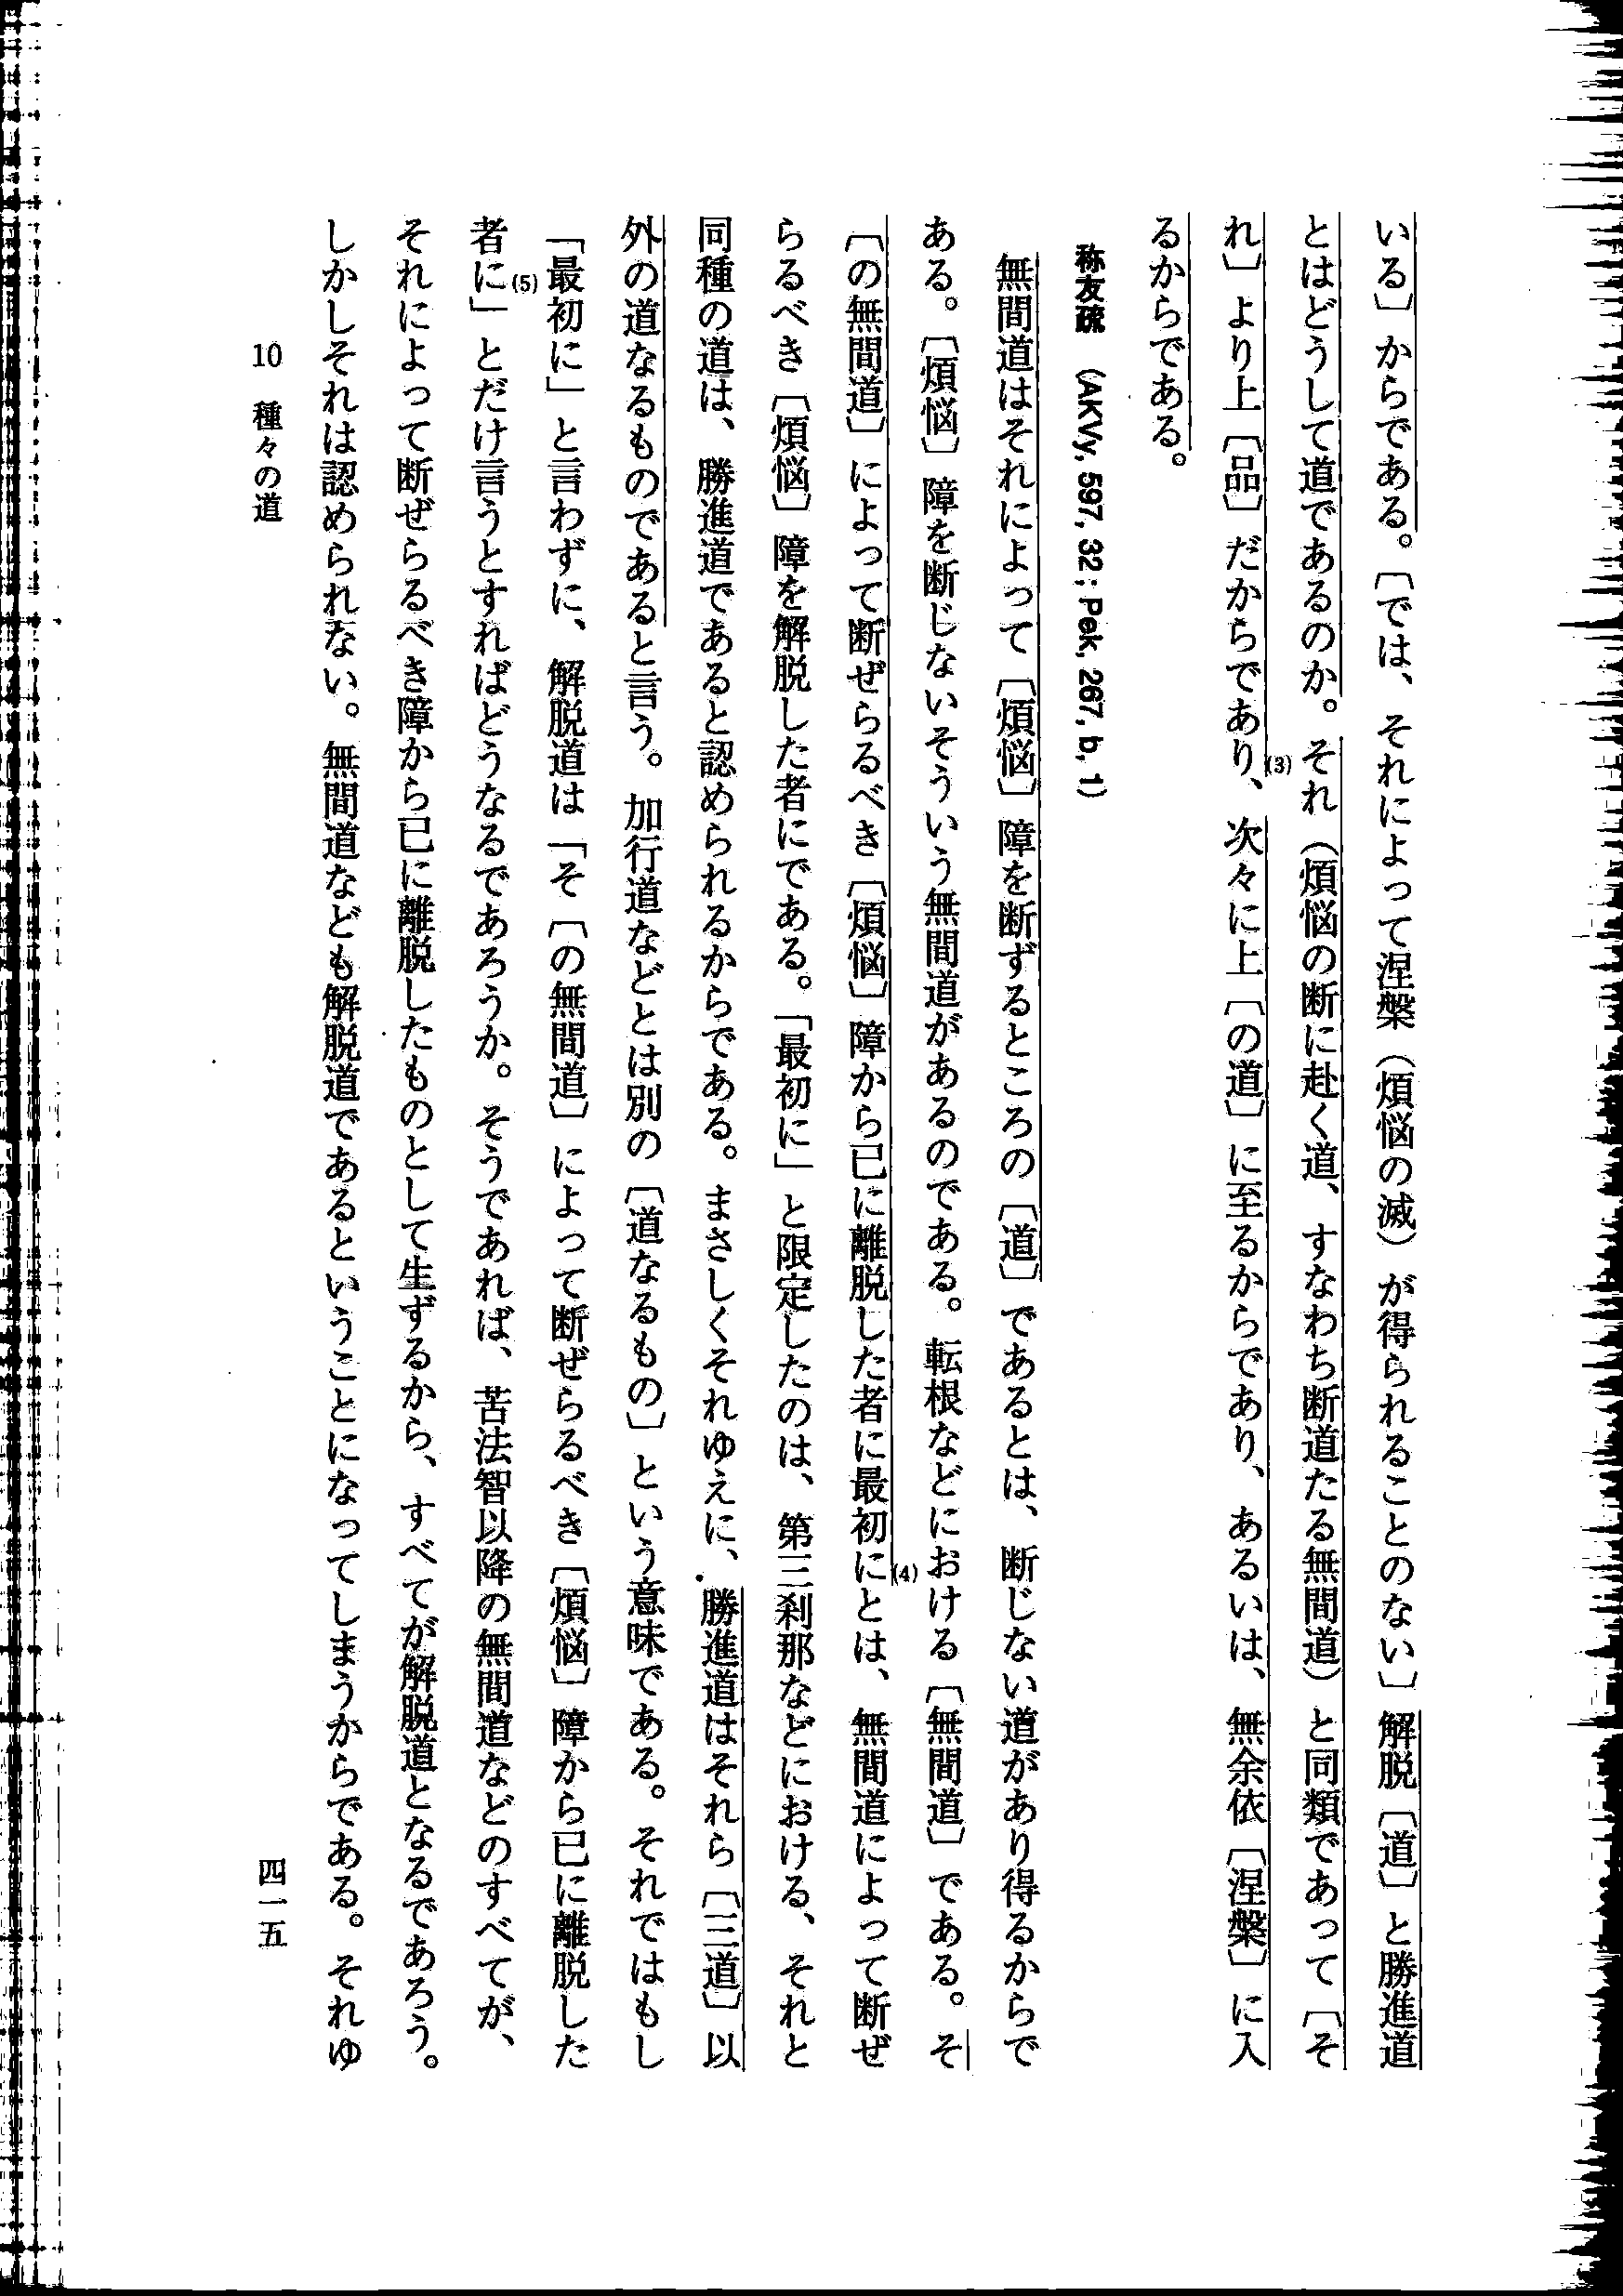 いる〕からである。〔では、それによって涅槃（煩悩の滅）が得られることのない〕解脱〔道〕と勝進道
とはどうして道であるのか。それ（煩悩の断に赴く道、すなわち断道たる無間道）と同類であって〔そ
れ〕より上〔品〕だからであり、(3)次々に上〔の道〕に至るからであり、あるいは、無余依〔涅槃〕に入
るからである。
称友疏　（AKVy, 597, 32 ; Pek, 267, b, 1）
無間道はそれによって〔煩悩〕障を断ずるところの〔道〕であるとは、断じない道があり得るからで
ある。〔煩悩〕障を断じないそういう無間道があるのである。転根などにおける〔無間道〕である。そ
〔の無間道〕によって断ぜらるべき〔煩悩〕障から已に離脱した者に最初に(4)とは、無間道によって断ぜ
らるべき〔煩悩〕障を解脱した者にである。「最初に」と限定したのは、第三刹那などにおける、それと
同種の道は、勝進道であると認められるからである。まさしくそれゆえに、勝進道はそれら〔三道〕以
外の道なるものであると言う。加行道などとは別の〔道なるもの〕という意味である。それではもし
「最初に」と言わずに、解脱道は「そ〔の無間道〕によって断ぜらるべき〔煩悩〕障から已に離脱した
者に(5)」とだけ言うとすればどうなるであろうか。そうであれば、苦法智以降の無間道などのすべてが、
それによって断ぜらるべき障から已に離脱したものとして生ずるから、すべてが解脱道となるであろう。
しかしそれは認められない。無間道なども解脱道であるということになってしまうからである。それゆ
10　種々の道
四一五